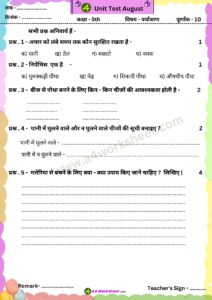 नाम -
दिनांक -
Unit Test August
कक्षा - 5th विषय - पर्यावरण पूर्णांक - 10
सभी प्रश्न अनिवार्य हैं -
प्रश्न . 1 - अचार को लंबे समय तक कौन सुरक्षित रखता है - 1
क) पानी ख) तेल ग) मसाले घ) नमक
प्रश्न . 2 - निपेंथिस एक है - 1
क) घुमक्कड़ी पौधा ख) पेड़ ग) शिकारी पौधा घ) औषधीय पौधा
प्रश्न . 3 - बीज से पौधा बनने के लिए किन - किन चीजों की आवश्यकता होती है - 2
प्रश्न . 4 - पानी में घुलने वाले और न घुलने वाले चीजों की सूची बनाइए ? 2
पानी में घुलने वाले -
पानी में न घुलने वाले -
प्रश्न . 5 - मलेरिया से बचने के लिए क्या - क्या उपाय किए जाने चाहिए ? लिखिए | 4
www.a4worksheet.com
Remark-
A4 Worksheet.com
Teacher's Sign -